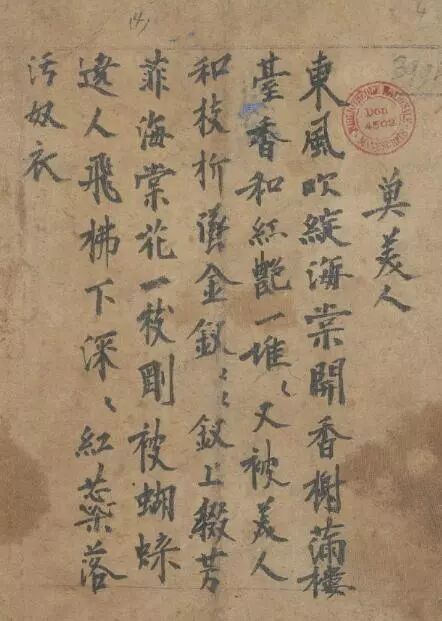 4
(4)
BIBLIOTHÈQUE NATIONALE MANUSCRITS
Don
4502
美人
東風吹綻海棠開香榭滿樓
臺香和紅艷一堆〻又被美人
和枝折墜金釵〻〻釵上綴芳
菲海棠花一枝剛被蝴蝶
遶人飛拂下深〻紅蕊落
污奴衣